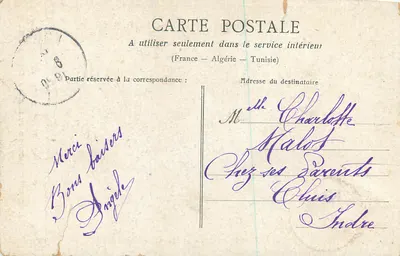 CARTE POSTALE
A utiliser seulement dans le service intérieur
(France — Algérie — Tunisie)
Partie réservée à la correspondance :
Adresse du destinataire
Merci
Bons baisers
Angèle
Mlle Charlotte
Malot
Chez ses Parents
Cluis
Indre